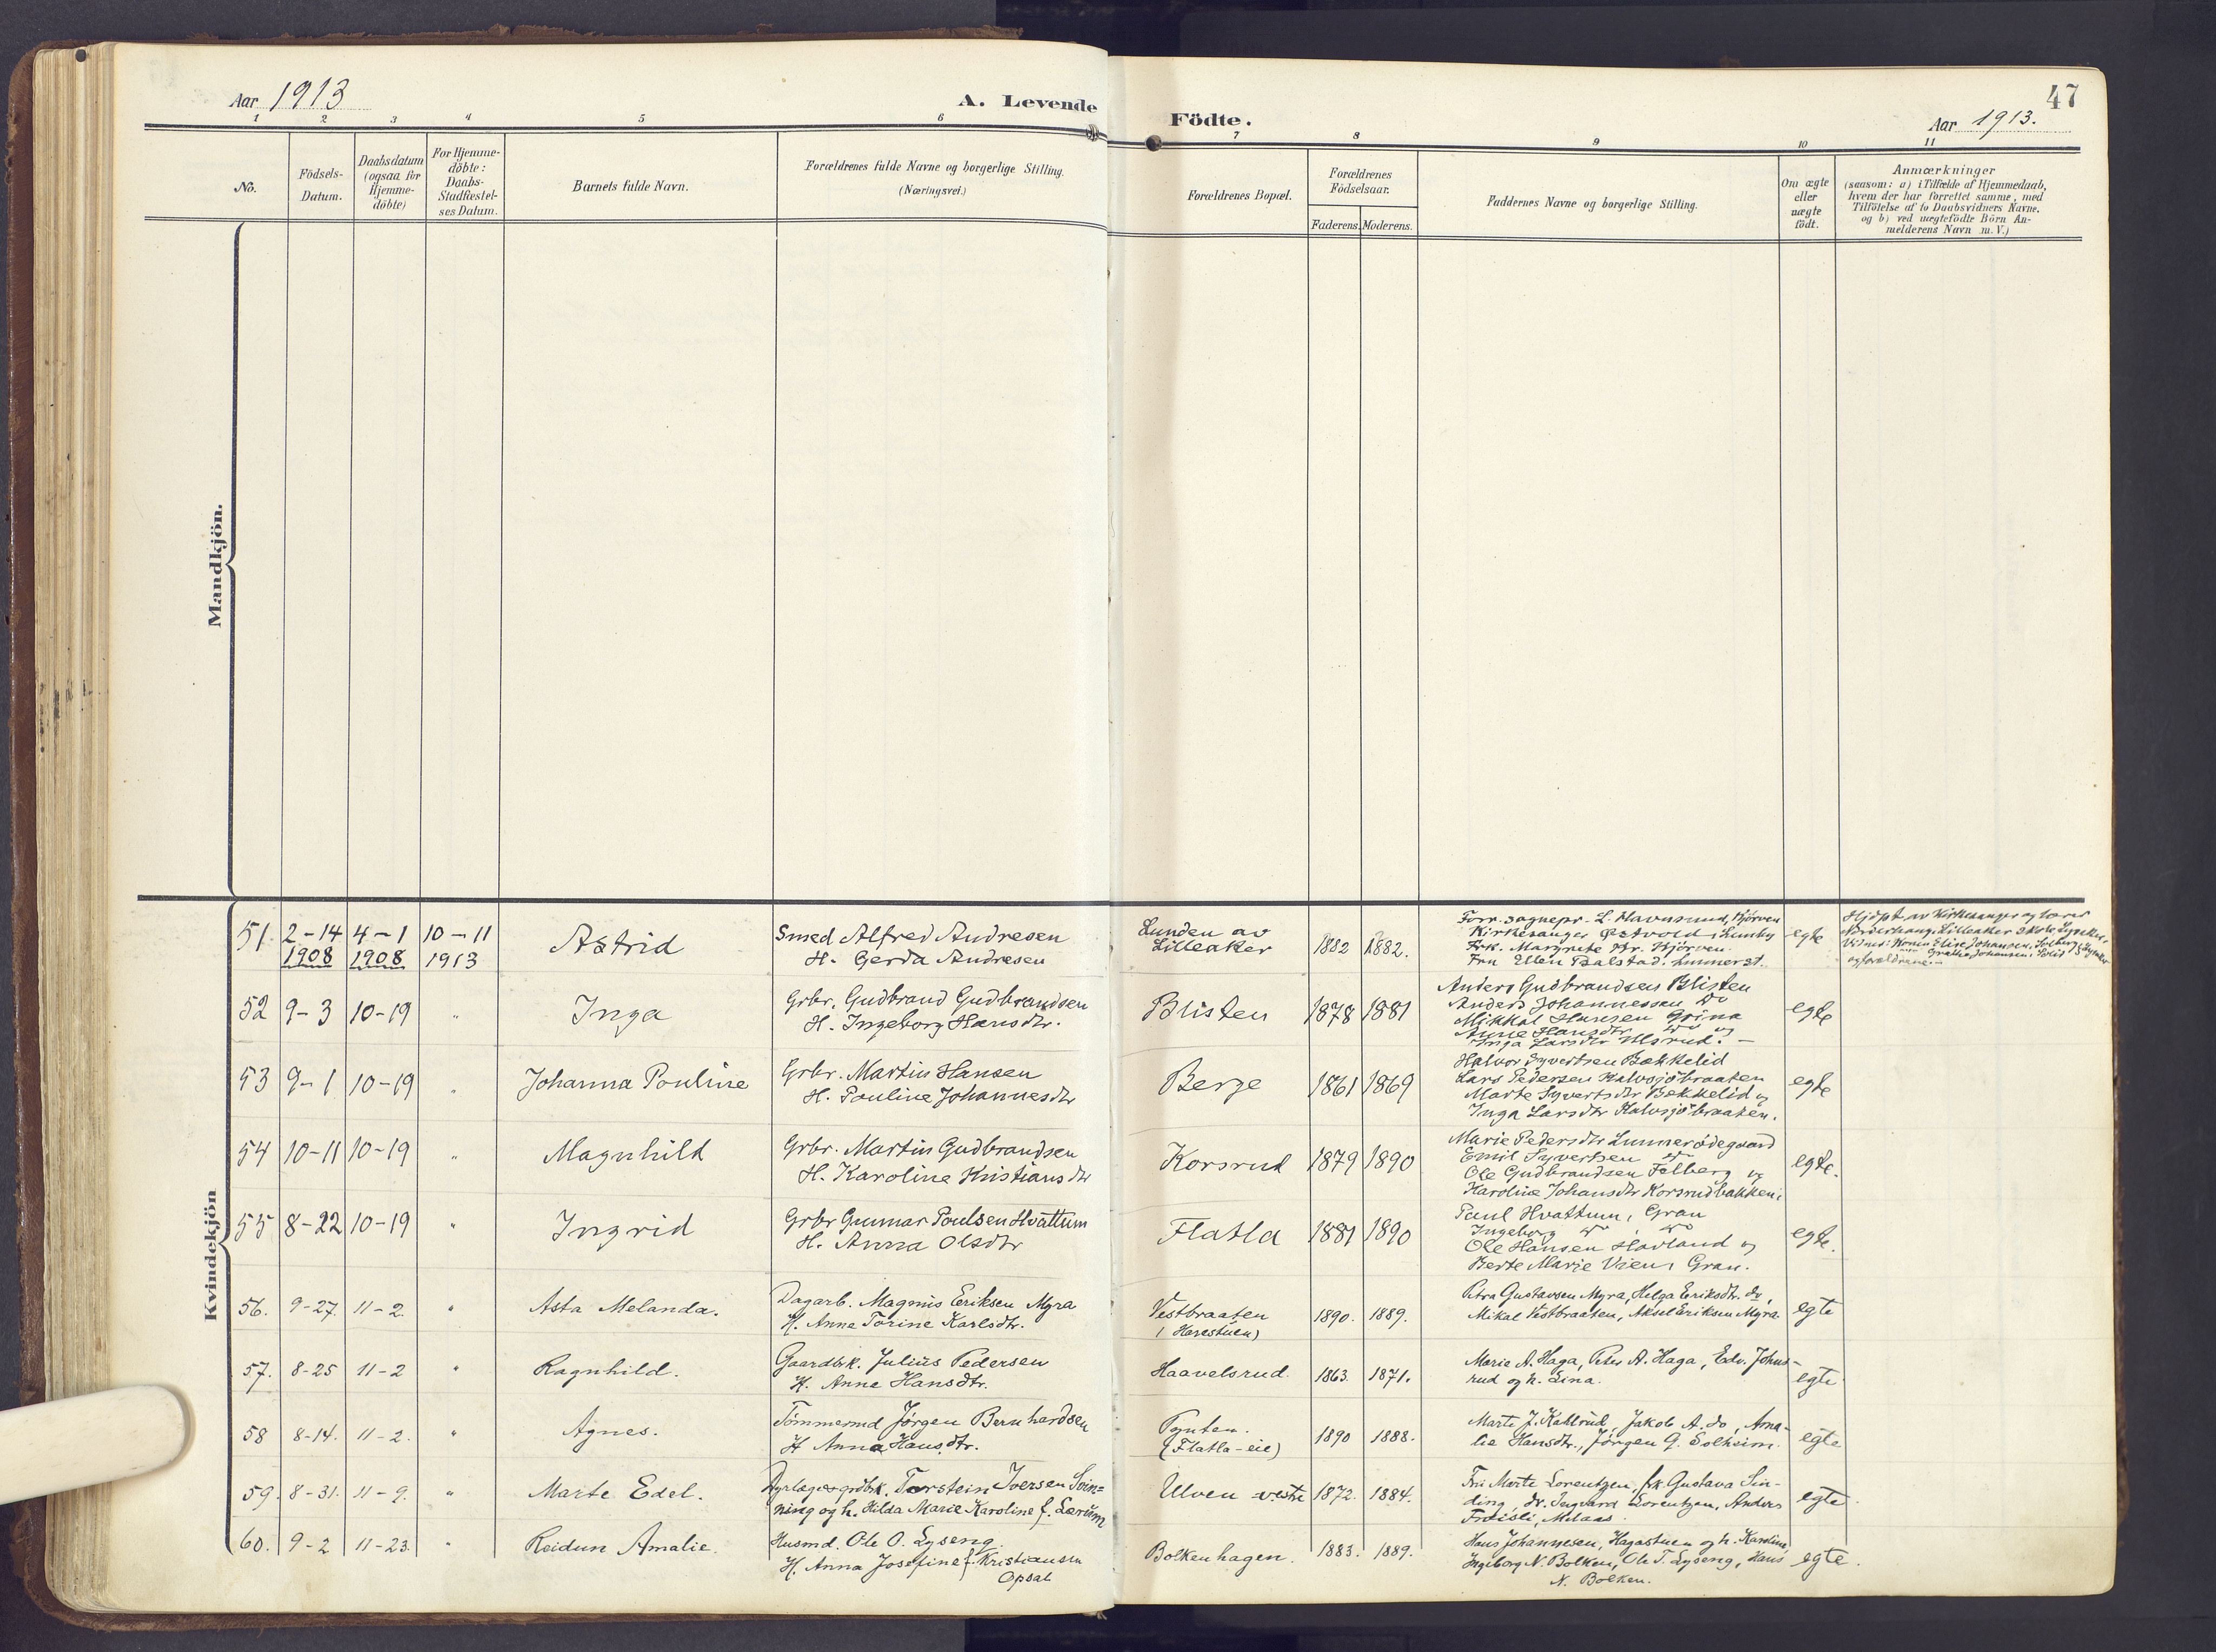 Aar 1913
A. Levende
Födte.
47
Aar 1913.
1 2 3 4 5 6 7 8 9 10 11
No.
Födsels-
Datum.
Daabsdatum
(ogsaa for
Hjemme-
döbte)
For Hjemme-
döbte:
Daabs-
Stadfæstel-
ses Datum.
Barnets fulde Navn.
Forældrenes fulde Navne og borgerlige Stilling.
(Næringsvei.)
Forældrenes Bopæl.
Forældrenes
Födselsaar.
Faderens. Moderens.
Faddernes Navne og borgerlige Stilling.
Om ægte
eller
uægte
födt.
Anmærkninger
(saasom: a) i Tilfælde af Hjemmedaab,
hvem der har forrettet samme, med
Tilföielse af to Daabsvidners Navne.
og b) ved uægtefödte Börn An-
melderens Navn m. V.)
Mandkjön.
Kvindekjön
51. 2-14 4-1 10-11
1908 1908 1913
Astrid
Smed Alfred Andresen
H. Gerda Andresen
Lunden av
Lilleaker
1882 1882.
Kirkesanger
Frk. Margrete
Fru Ellen
egte
Hjdpt av Kirkesanger og lærer
Lilleaker skole
Vidner: Konen Elise Johansen
52 9-3 10-19 "
Inga
Grbr. Gudbrand Gudbrandsen
H. Ingeborg Hansdtr.
Blisten
1878 1881
Anders Gudbrandsen Blisten
Anders Johannessen do
Mikkal Hansen Grina
Anne Hansdtr do og
Inga Larsdtr Ulsrud.
egte
53 9-1 10-19 "
Johanna Pouline
Grbr. Martin Hansen
H. Pouline Johannesdtr
Berge
1861 1869
Halvor Syvertsen Bækkelid
Lars Pedersen Kalvsjöbraaten
Marte Syvertsdtr Bækkelid og
Inga Larsdtr Kalvsjöbraaten.
egte
54 10-11 10-19 "
Magnhild
Grbr. Martin Gudbrandsen
H. Karoline Kristiansdtr
Korsrud
1879 1890
Marie Pedersdtr Lunnerödegaard
Emil Syvertsen do
Ole Gudbrandsen Felberg og
Karoline Johansdtr Korsrudbakken.
egte.
55 8-22 10-19 "
Ingrid
Grbr Gunnar Poulsen Hvattum
H. Anna Olsdtr
Flatla
1881 1890
Paul Hvattum, Gran
Ingeborg do, do
Ole Hansen Hovland og
Berte Marie Vien, Gran.
egte.
56. 9-27. 11-2. "
Asta Melanda.
Dagarb. Magnus Eriksen Myra
H. Anne Torine Karlsdtr.
Vestbraaten
(Harestuen)
1890. 1889.
Petra Gustavsen Myra, Helga Eriksdtr. do,
Mikal Vestbraaten, Aksel Eriksen Myra.
egte
57. 8-25 11-2 "
Ragnhild.
Gaardbrk. Julius Pedersen
H. Anne Hansdtr.
Haavelsrud.
1863. 1871.
Marie A. Haga, Peter A. Haga, Edv. Johns-
rud og h. Lina.
egte
58 8-14. 11-2. "
Agnes.
Tömmermd Jörgen Bernhardsen
H Anna Hansdtr.
Tynten.
(Flatla-eie)
1890 1888.
Marte J. Kallrud, Jakob A. do, Ama-
lie Hansdtr., Jörgen G. Solheim.
egte
59. 8-31. 11-9. "
Marte Edel.
Dyrlæge og grdbrk. Torstein Iversen Svin=
ning og h. Hilda Marie Karoline f. Lærum
Ulven vestre
1872. 1884.
Fru Marte Lorentzen, frk Gustava Sin-
ding, dr. Ingvard Lorentzen, Anders
Fröisli, Melaas.
egte.
60. 9-2 11-23. "
Reidun Amalie.
Husmd. Ole O. Lyseng.
H. Anna Josefine f. Kristiansen
Opsal
Bolkenhagen.
1883. 1889.
Hans Johannesen, Hagastuen og h. Karoline,
Ingeborg N. Bolken, Ole T. Lyseng, Hans
N. Bolken.
egte.